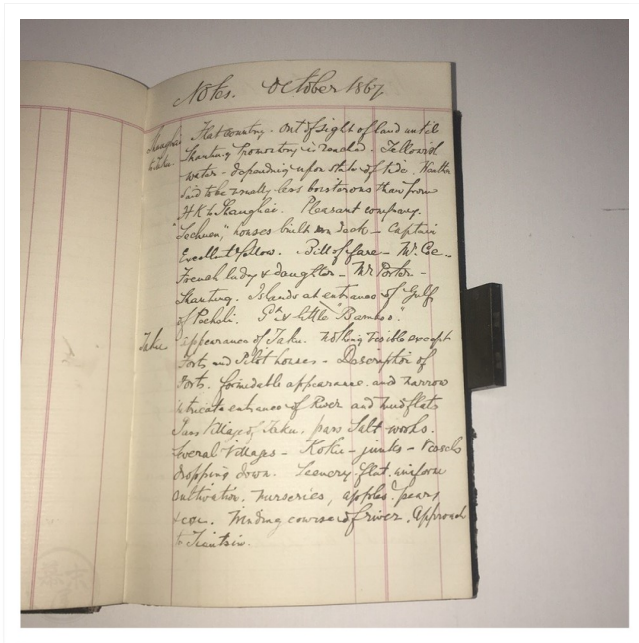 Notes. October 1867
Shanghai to Taku
Flat country. Out of sight of land until
Shantung Promontory is reached. Yellowish
water - depending upon state of tide. Weather
said to be usually less boisterous than from
HK to Shanghai. Pleasant company.
"Szechuen", houses built on deck - Captain
Excellent fellow. Bill of fare - Mr.
French lady & daughter - Mr Porter -
Shantung. Islands at entrance of Gulf
of Pecheli. & little "Bamboo".
Taku
appearance of Taku. Nothing visible except
Forts and Pilot houses - Description of
Forts. formidable appearance and narrow
intricate entrance of River and mudflats
Pass Village of Taku, pass Salt works.
Several Villages - Koku - junks - vessels
dropping down. Scenery flat, uniform
cultivation, nurseries, apples, pears
Winding course of river. Approach
to Tientsin.